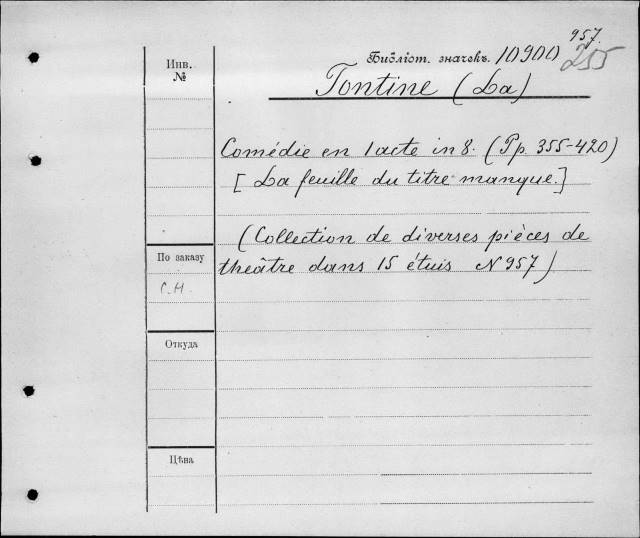 957.
Инв. №
Библіот. значекъ. 10900 255
Tontine (La)
Comédie en 1 acte in 8. (Pp. 355-420)
[La feuille du titre manque.]
(Collection de diverses pièces de
По заказу
theâtre dans 15 étuis N 957)
С.Н.
Откуда
Цѣна